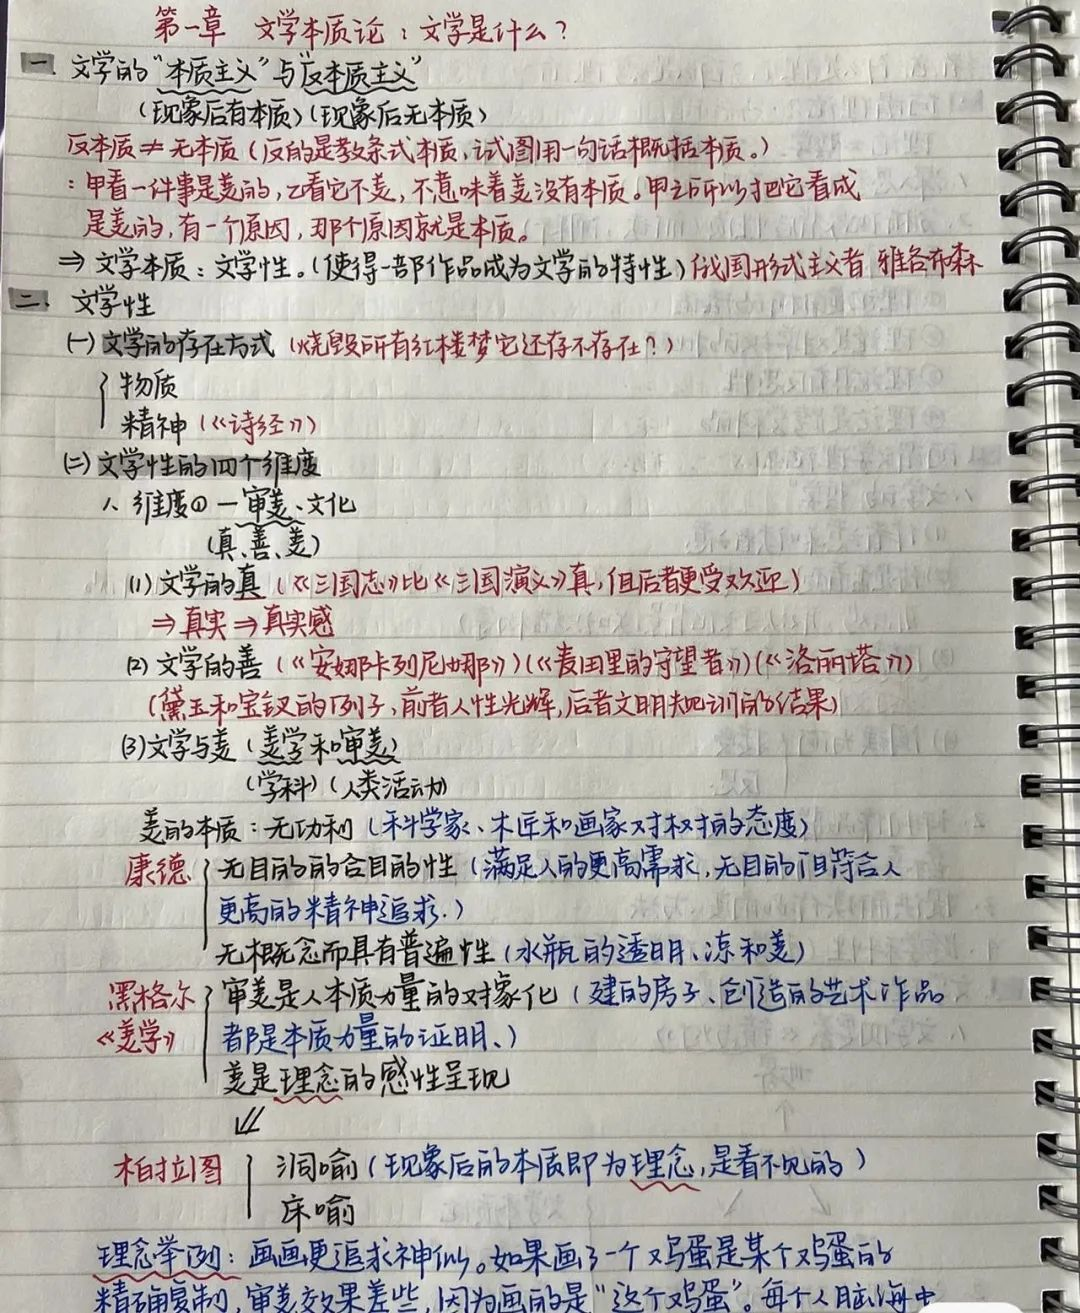 第一章 文学本质论：文学是什么？
一、文学的“本质主义”与“反本质主义”
(现象后有本质)(现象后无本质)
反本质≠无本质(反的是教条式本质，试图用一句话概括本质。)
：甲看一件事是美的，乙看它不美，不意味着美没有本质。甲之所以把它看成
是美的，有一个原因，那个原因就是本质。
⇒ 文学本质：文学性。(使得一部作品成为文学的特性)俄国形式主义者 雅各布森
二、文学性
(一)文学的存在方式(烧毁所有红楼梦它还存不存在？)
物质
精神(《诗经》)
(二)文学性的四个维度
1、维度① — 审美、文化
(真、善、美)
(1)文学的真(《三国志》比《三国演义》真，但后者更受欢迎)
⇒真实⇒真实感
(2)文学的善(《安娜卡列尼娜》)(《麦田里的守望者》)(《洛丽塔》)
(黛玉和宝钗的例子，前者人性光辉，后者文明规训的结果)
(3)文学与美(美学和审美)
(学科)(人类活动)
美的本质：无功利(科学家、木匠和画家对树的态度)
康德 无目的的合目的性(满足人的更高需求，无目的但符合人
更高的精神追求.)
无概念而具有普遍性(水瓶的透明、凉和美)
黑格尔 审美是人本质力量的对象化(建的房子、创造的艺术作品
《美学》 都是本质力量的证明、)
美是理念的感性呈现
柏拉图 洞喻(现象后的本质即为理念，是看不见的)
床喻
理念举例：画画更追求神似。如果画了一个鸡蛋是某个鸡蛋的
精确复制，审美效果差些，因为画的是“这个鸡蛋”。每个人脑海中